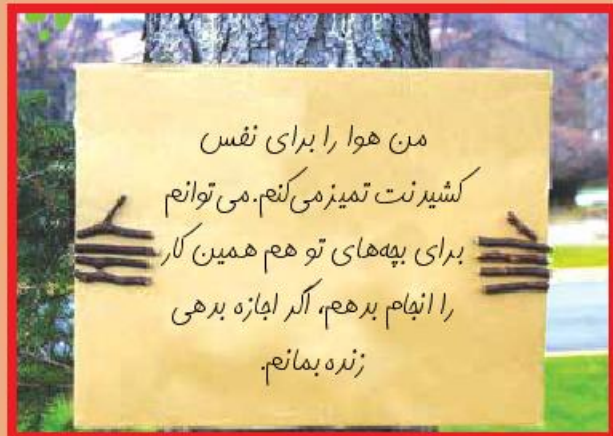 من هوا را برای نفس
کشیدنت تمیز می‌کنم. می‌توانم
برای بچه‌های تو هم همین کار
را انجام بدهم، اگر اجازه بدهی
زنده بمانم.